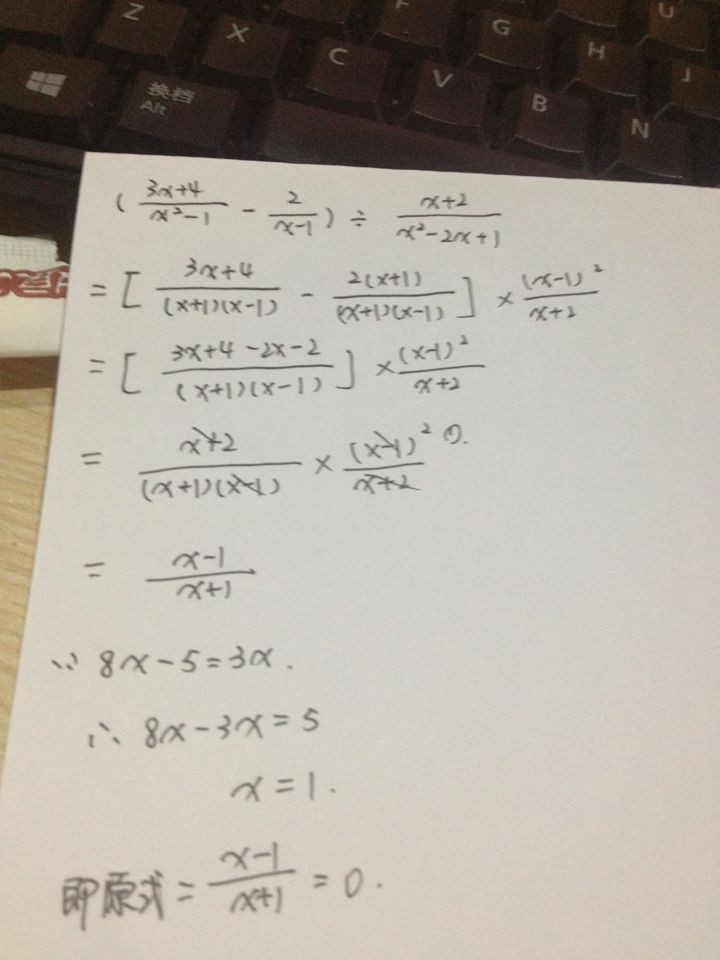 U
Z
F
G
X
H
C
J
V
换档
Alt
B
N
( (3x+4)/(x²-1) - 2/(x-1) ) ÷ (x+2)/(x²-2x+1)
= [ (3x+4)/((x+1)(x-1)) - 2(x+1)/((x+1)(x-1)) ] × (x-1)²/(x+2)
= [ (3x+4-2x-2)/((x+1)(x-1)) ] × (x-1)²/(x+2)
= (x+2)/((x+1)(x-1)) × (x-1)²/(x+2) ①.
= (x-1)/(x+1)
∵ 8x-5=3x.
∴ 8x-3x=5
x=1.
即原式 = (x-1)/(x+1) = 0.